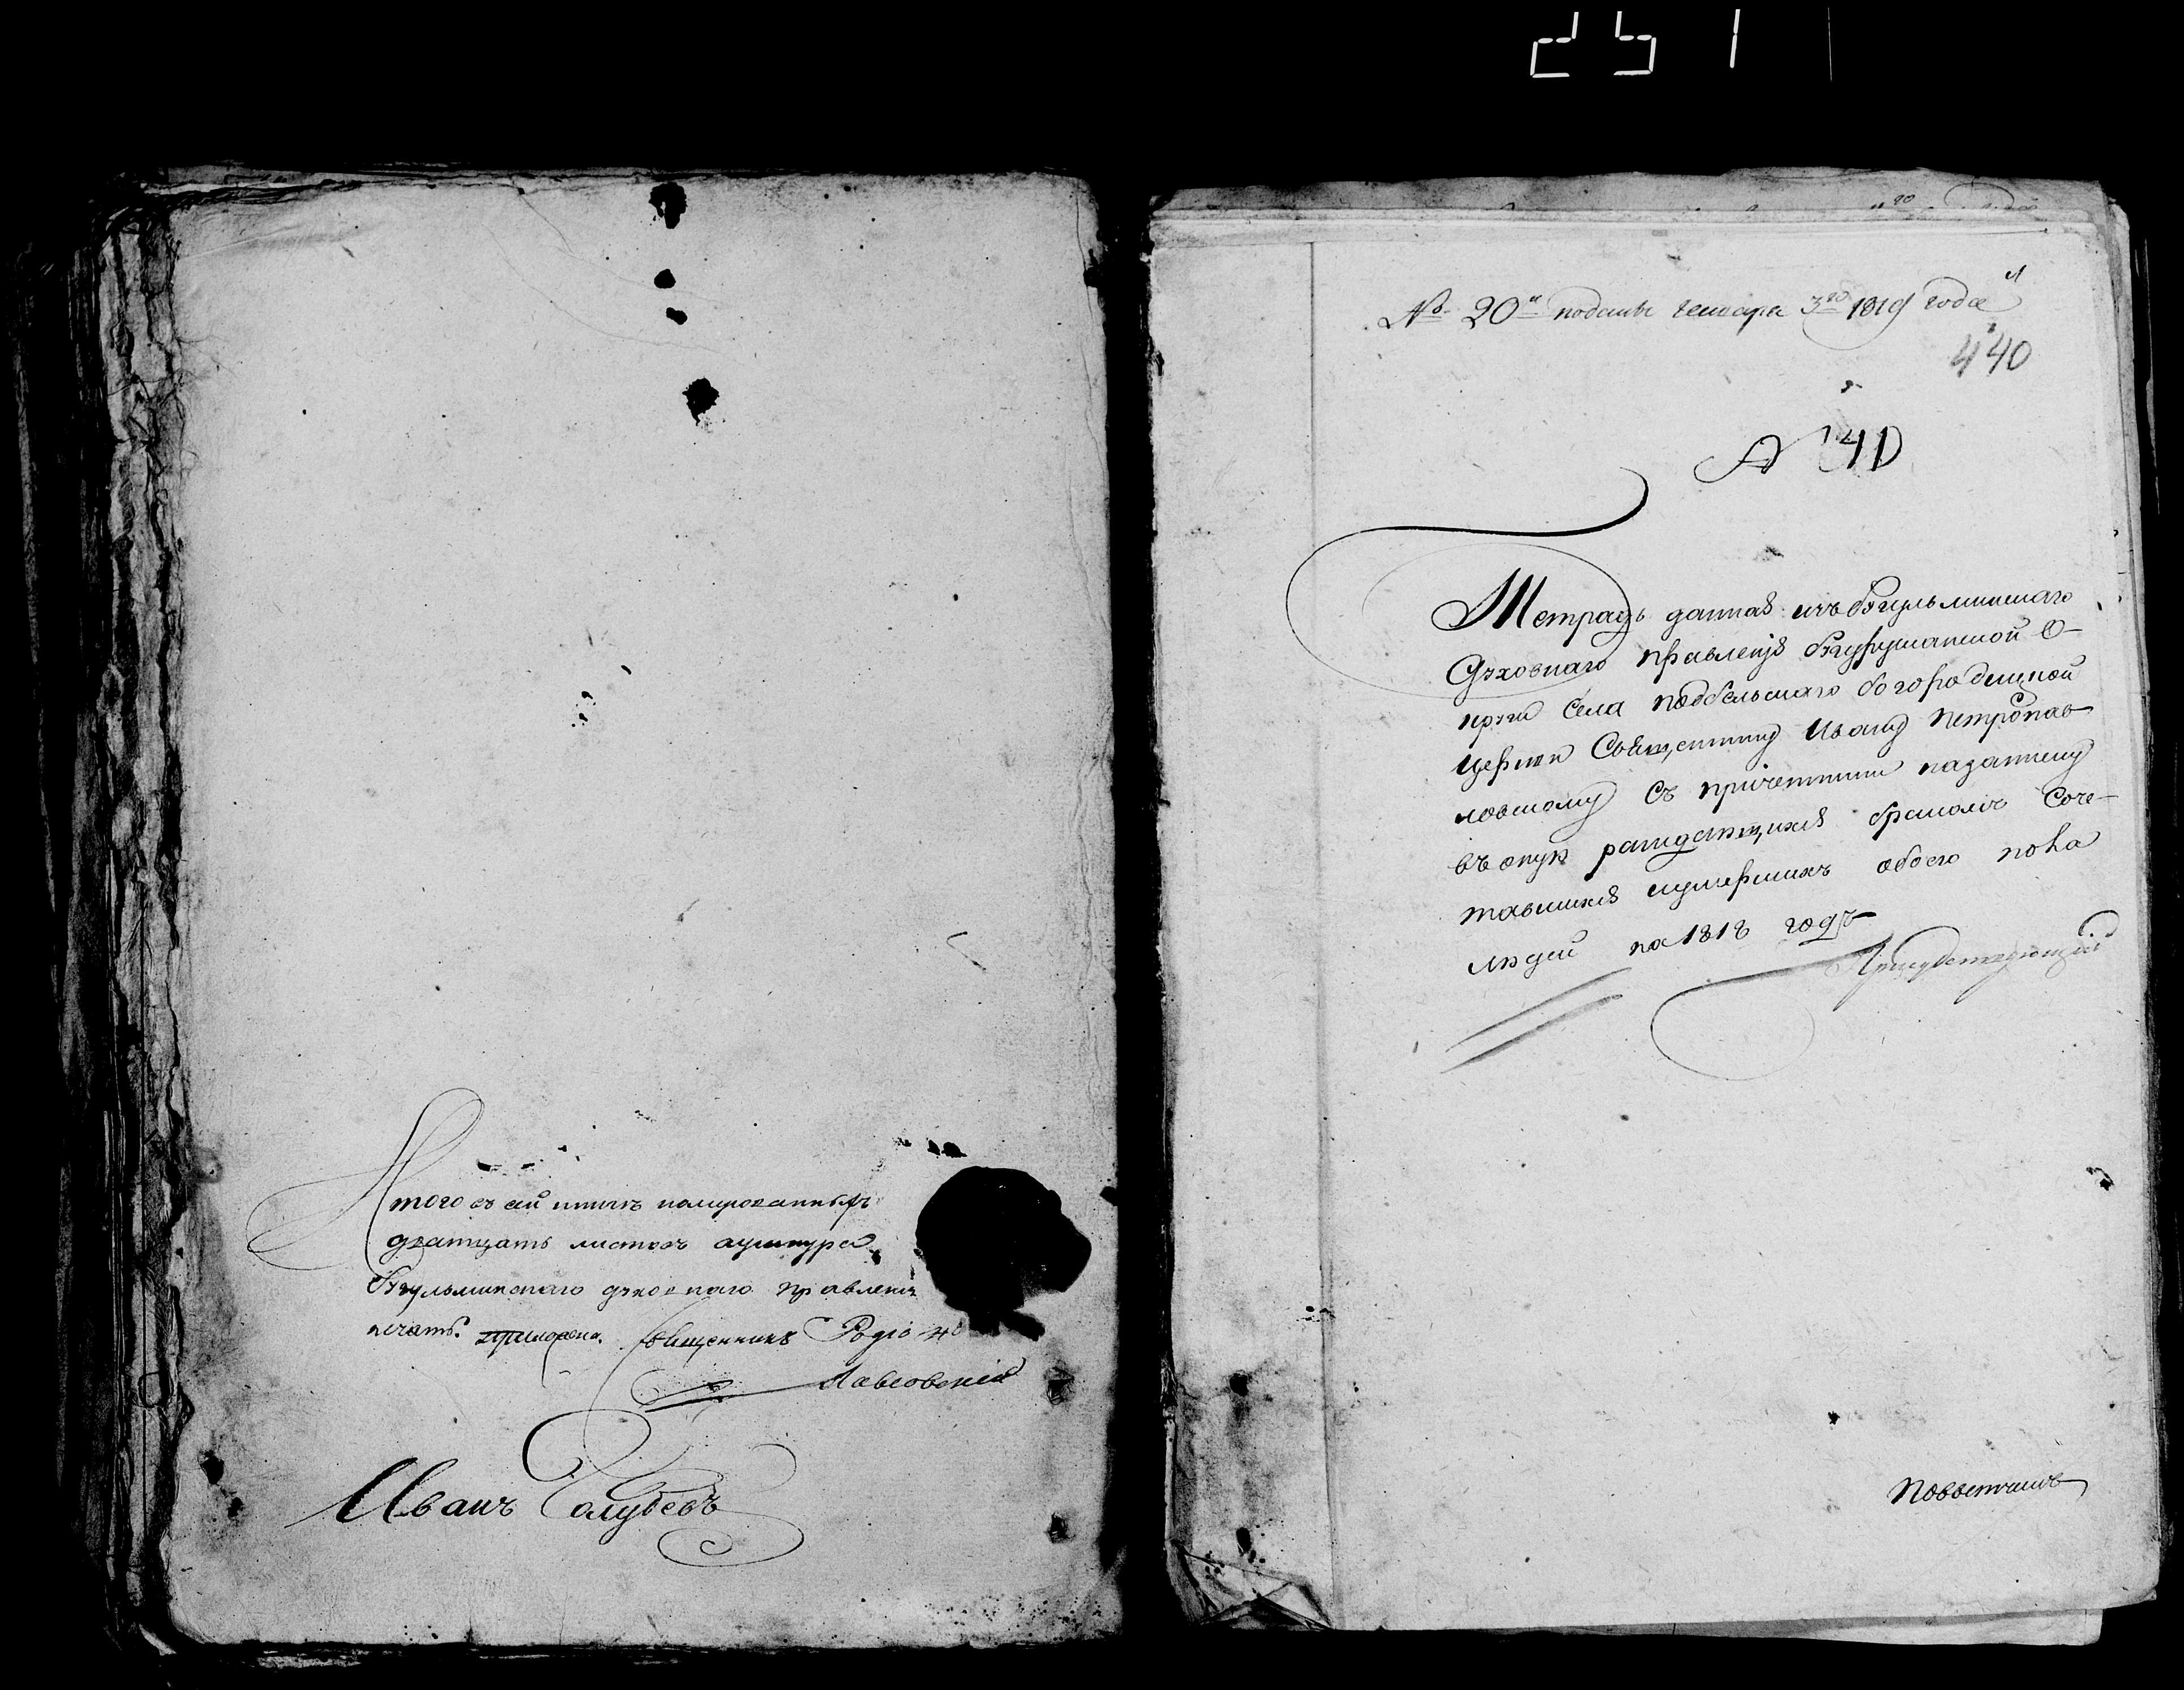 251
Итого въ сей книгѣ номерованныхъ
дватцать листовъ аушнура
Бугульминского духовнаго правленія
печать приложена. Священникъ Родіонъ
Павловскій
Иванъ Голубевъ
№ 20й поданы генваря 3го 1819 года
440
№ 40
Тетрадь данная изъ Бугульминскаго
Духовнаго правленія Бугурусланской О-
круги Села Подбельскаго богородицкой
Церкви Священнику Ивану Петропав-
ловскому съ причетники назаписку
въ оную раждающихся бракомъ Соче-
тавшихся иумершихъ обоего пола
людей на 1818 годъ
Присудствующій